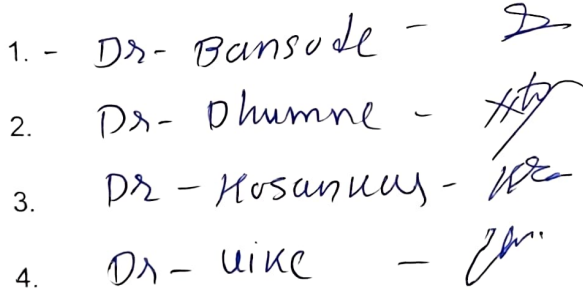 1. - Dr- Bansode -
2. Dr- Dhumne -
3. Dr - Hosankar -
4. Dr - Uike -